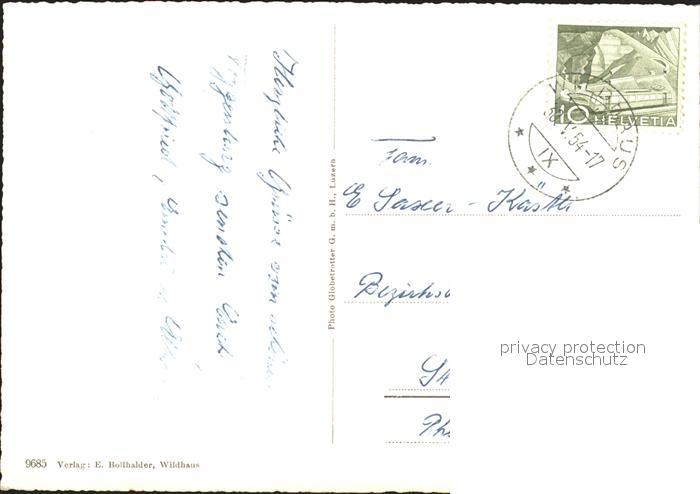 Herzliche Grüsse vom schönen
Toggenburg senden Euch
Gottfried,
Photo Globetrotter G. m. b. H., Luzern
10 HELVETIA
V.54-17
IX
Fam.
E Saxer - Kästli
Bezirks
privacy protection
Datenschutz
9685 Verlag: E. Bollhalder, Wildhaus